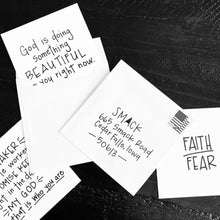 God is doing
something
BEAUTIFUL
you right now.
SMACK
665 Smack Road
Cedar Falls, Iowa
50613
FAITH
FEAR
MAKER
PROMISE
in the
MY GOD
that is who you are